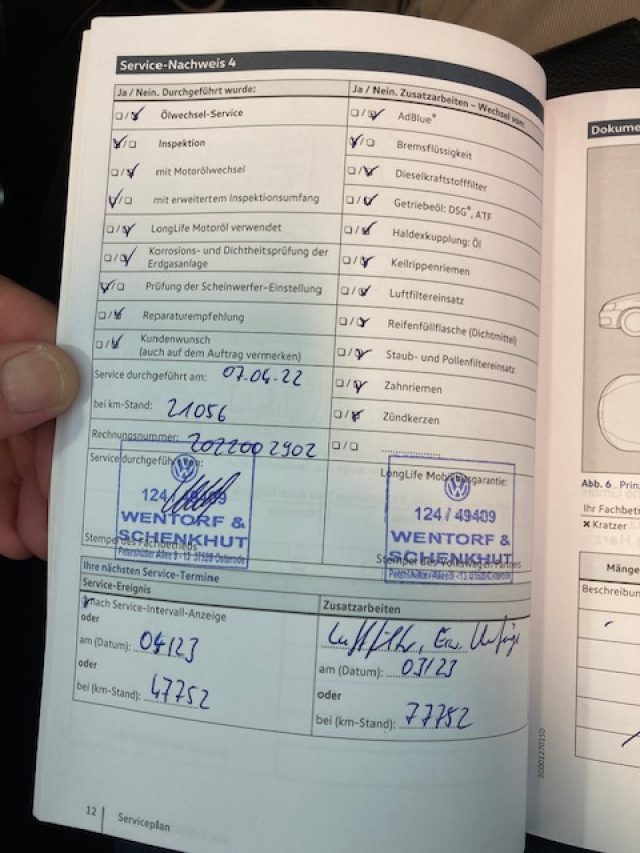 Service-Nachweis 4
Ja / Nein. Durchgeführt wurde:
☐/☑ Ölwechsel-Service
☑/☐ Inspektion
☐/☑ mit Motorölwechsel
☑/☐ mit erweitertem Inspektionsumfang
☐/☑ LongLife Motoröl verwendet
☐/☑ Korrosions- und Dichtheitsprüfung der
Erdgasanlage
☑/☐ Prüfung der Scheinwerfer-Einstellung
☐/☑ Reparaturempfehlung
☐/☑ Kundenwunsch
(auch auf dem Auftrag vermerken)
Service durchgeführt am: 07.04.22
bei km-Stand: 21056
Rechnungsnummer: 2022002902
Service durchgeführt von:
124 / 49409
WENTORF &
SCHENKHUT
Petershütter Allee 9 - 13 37520 Osterode
Stempel des Fachbetriebs
Ja / Nein. Zusatzarbeiten – Wechsel von:
☐/☑ AdBlue®
☑/☐ Bremsflüssigkeit
☐/☑ Dieselkraftstofffilter
☐/☑ Getriebeöl: DSG®, ATF
☐/☑ Haldexkupplung: Öl
☐/☑ Keilrippenriemen
☐/☑ Luftfiltereinsatz
☐/☑ Reifenfüllflasche (Dichtmittel)
☐/☑ Staub- und Pollenfiltereinsatz
☐/☑ Zahnriemen
☐/☑ Zündkerzen
☐/☐
LongLife Mobilitätsgarantie:
124 / 49409
WENTORF &
SCHENKHUT
Petershütter Allee 9 - 13 37520 Osterode
Stempel des Volkswagen Partners
Ihre nächsten Service-Termine
Service-Ereignis
nach Service-Intervall-Anzeige
oder
am (Datum): 04/23
oder
bei (km-Stand): 47752
Zusatzarbeiten
Luftfilter, Erw. Umfänge
am (Datum): 03/23
oder
bei (km-Stand): 77752
12 Serviceplan
3G0012701SD
Dokume
Abb. 6 Prin
Ihr Fachbetr
× Kratzer
Mänge
Beschreibun